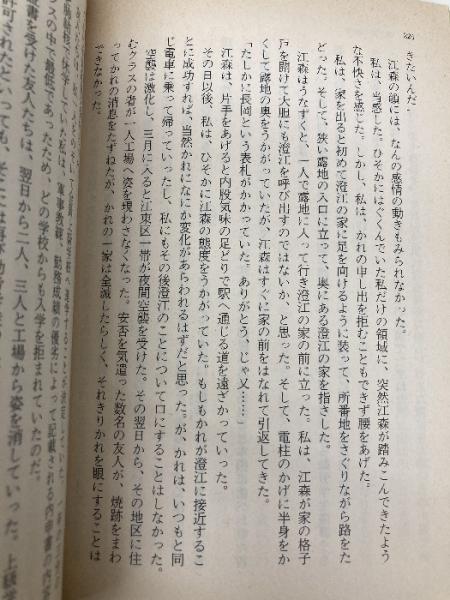 326
きたいんだ」
江森の顔には、なんの感情の動きもみられなかった。
私は、当惑した。ひそかにはぐくんでいた私だけの領域に、突然江森が踏みこんできたよう
な不快さを感じた。しかし、私は、かれの申し出を拒むこともできず腰をあげた。
私は、家を出ると初めて澄江の家に足を向けるように装って、所番地をさぐりながら路をた
どった。そして、狭い露地の入口に立って、奥にある澄江の家を指さした。
江森はうなずくと、一人で露地に入って行き澄江の家の前に立った。私は、江森が家の格子
戸を開けて大胆にも澄江を呼び出すのではないか、と思った。そして、電柱のかげに半身をか
くして露地の奥をうかがっていたが、江森はすぐに家の前をはなれて引返してきた。
「たしかに長岡という表札がかかっていた。ありがとう、じゃ又……」
江森は、片手をあげると内股気味の足どりで駅へ通じる道を遠ざかっていった。
その日以後、私は、ひそかに江森の態度をうかがっていた。もしもかれが澄江に接近するこ
とに成功すれば、当然かれになにか変化があらわれるはずだと思った。が、かれは、いつもと同
じ電車に乗って帰っていったし、私にもその後澄江のことについて口にすることはしなかった。
空襲は激化し、三月に入ると江東区一帯が夜間空襲を受けた。その翌日から、その地区に住
むクラスの者が一人工場へ姿を現わさなくなった。安否を気遣った数名の友人が、焼跡をまわ
ってかれの消息をたずねたが、かれの一家は全滅したらしく、それきりかれを眼にすることは
できなかった。
私は、軍事教練、勤務成績の優劣によって記載される内申書の内容
の中で最低であったため、どの学校からも入学を拒まれていたのだ。
書を受けた友人は、翌日から二人、三人と工場から姿を消していった。上級学
許可されたといっても、そこには